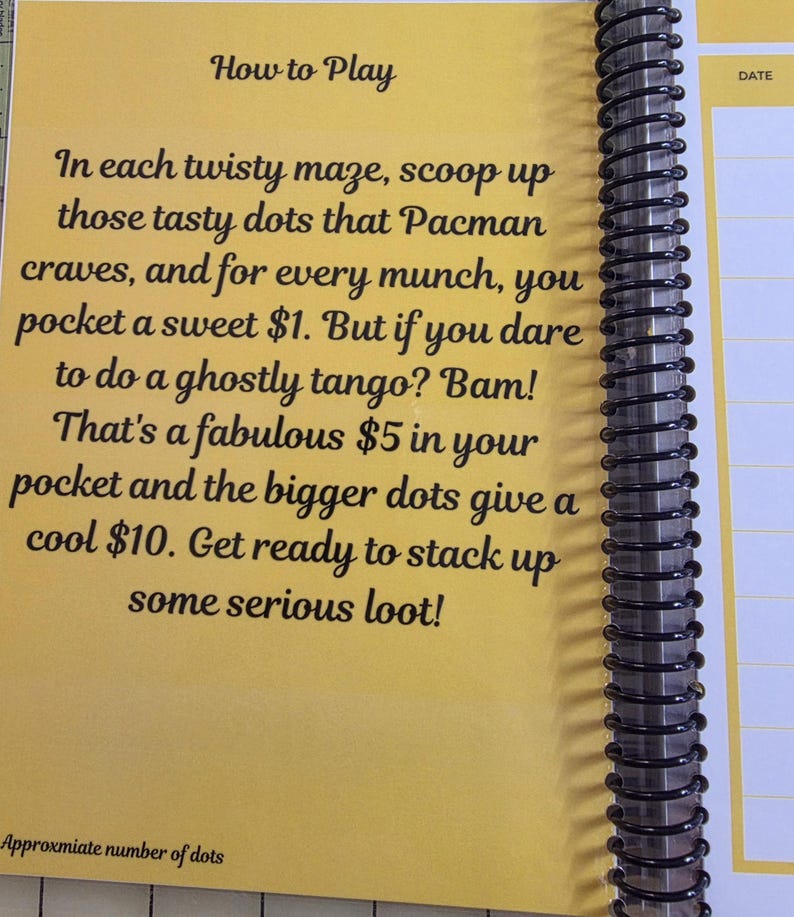 How to Play
In each twisty maze, scoop up
those tasty dots that Pacman
craves, and for every munch, you
pocket a sweet $1. But if you dare
to do a ghostly tango? Bam!
That's a fabulous $5 in your
pocket and the bigger dots give a
cool $10. Get ready to stack up
some serious loot!
Approxmiate number of dots
DATE